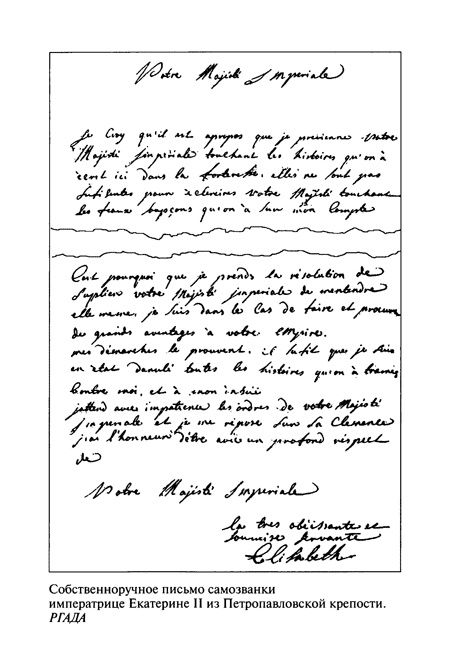 Votre Majesté Imperiale
Je Croy qu'il est apropos que je previenne Votre
Majesté jmperiale touchant les histoires qu'on à
ecrit ici dans la forteresse. elles ne sont pas
sufisentes pour eclercires votre Majesté touchant
les feaux supçons qu'on à sur mon Compte
C'est pourquoi que je prends la résolution de
suplier votre Majesté jmperiale de mentendre
elle meme, je suis dans le Cas de faire et procure
de grands aventages à votre Empire.
mes démarches le prouvent. il sufit que je suis
en état danulé toutes les histoires qu'on à tramés
Contre moi, et à mon insue
jattend avec impatience les ordres de votre Majesté
jmperiale et je me repose sur sa Clemence
j'ai l'honneur dêtre avec un profond réspect
de
Votre Majesté Imperiale
la tres obéissante et
soumise servante
Elisabeth
Собственноручное письмо самозванки
императрице Екатерине II из Петропавловской крепости.
РГАДА